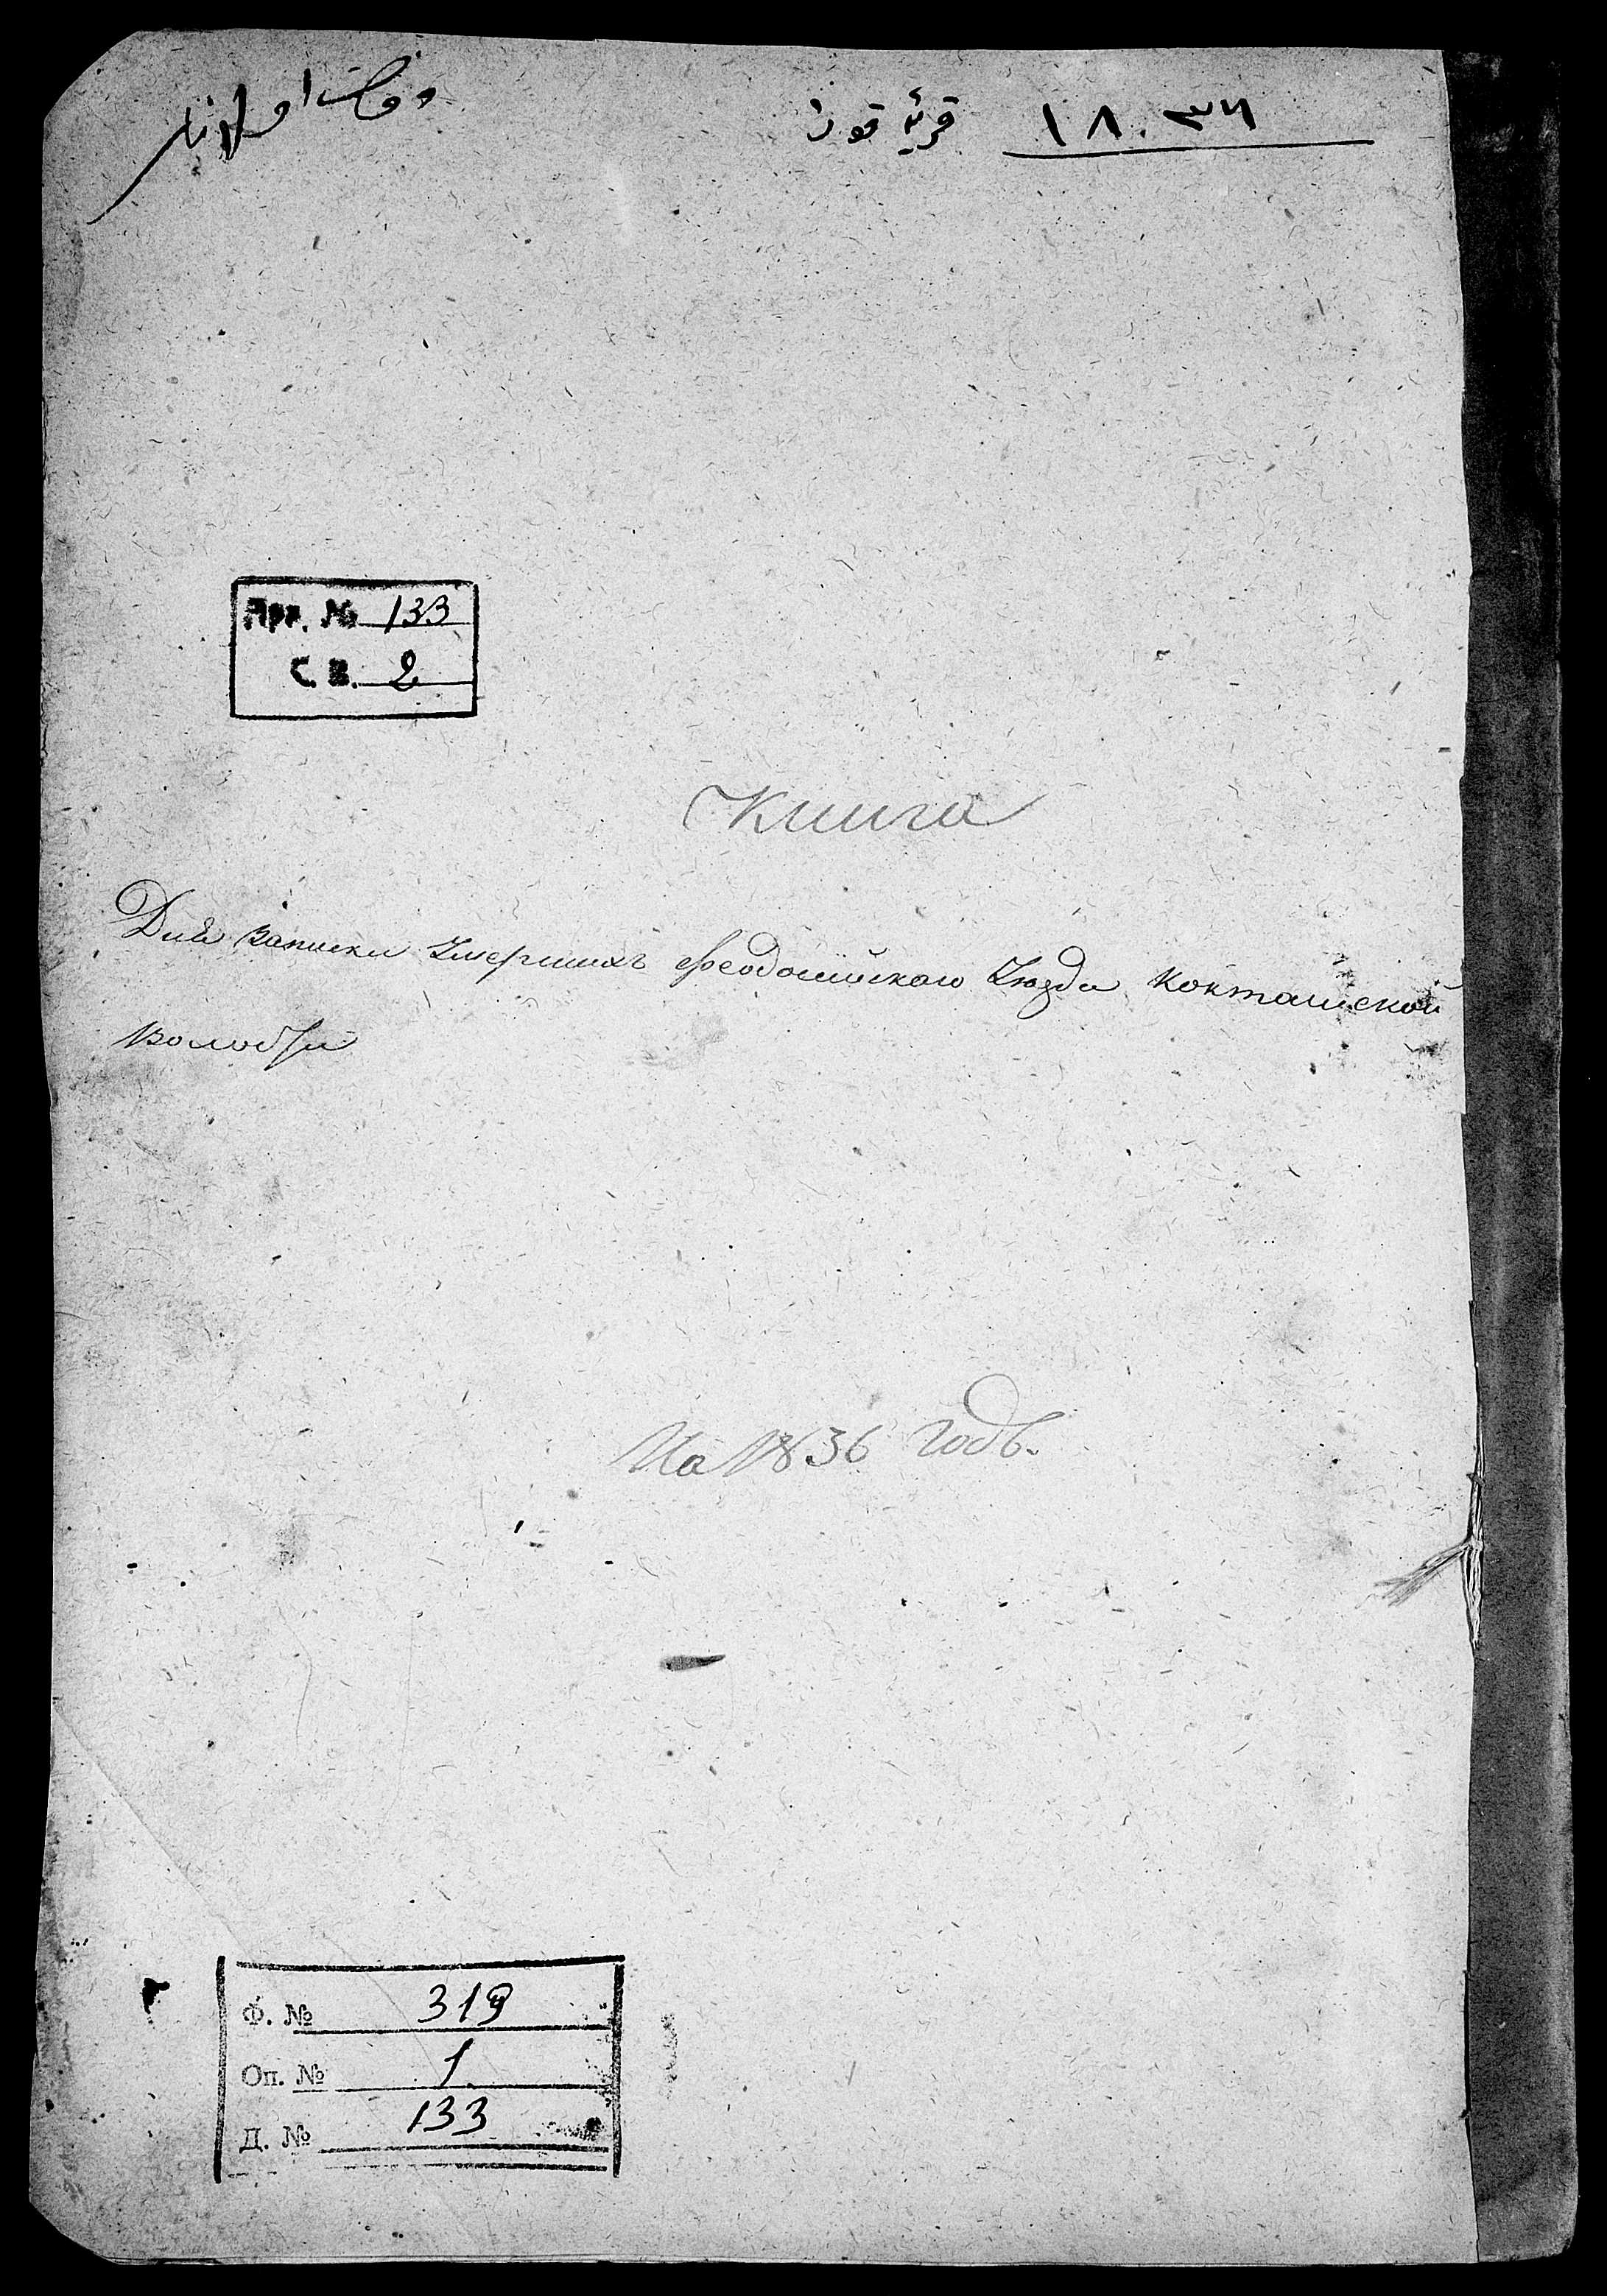 ١٨٣٦ قريه قوز
وفات اولانلر
Арх. № 133
С. В. 2
Книга
Для записки Умершихъ Феодосійскаго Уюзда Кокташской
Волости
На 1836 годъ.
Ф. № 319
Оп. № 1
Д. № 133